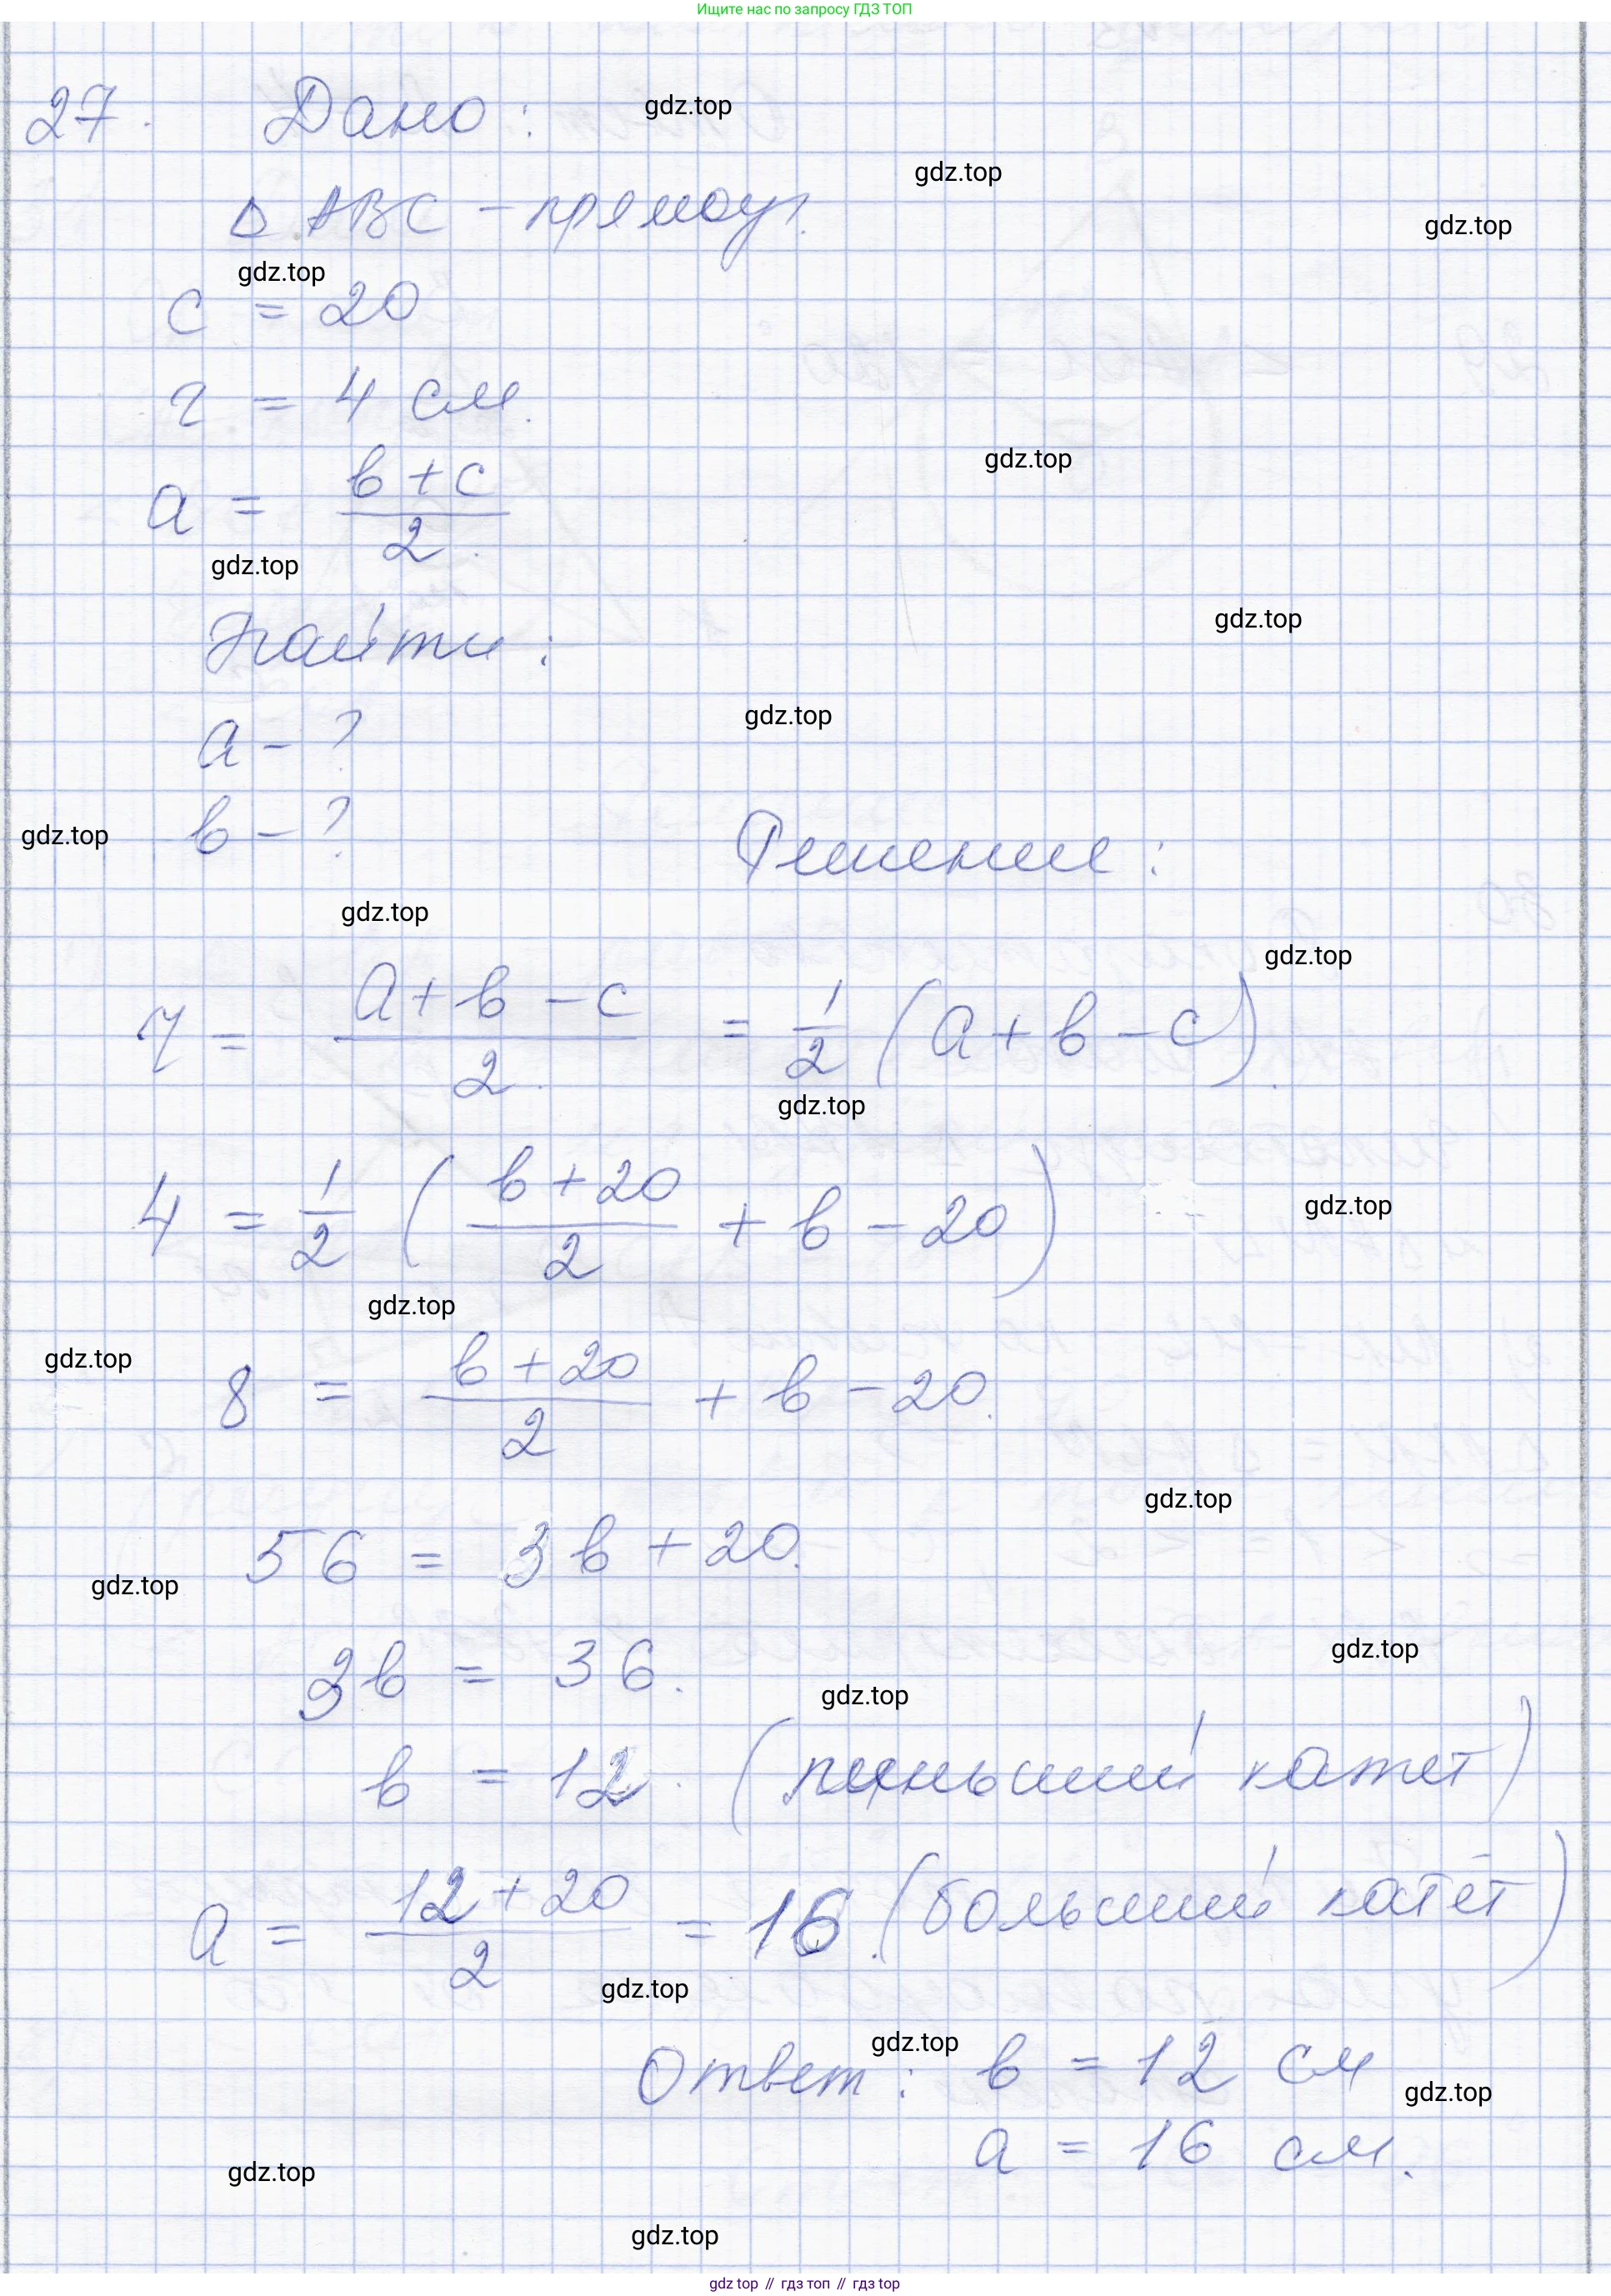 Ищите нас по запросу ГДЗ ТОП
27. Дано: gdz.top
gdz.top
Δ ABC - прямоуг. gdz.top
gdz.top
c = 20
r = 4 см.
a = (b + c)/2 gdz.top
gdz.top
Найти: gdz.top
a - ? gdz.top
gdz.top b - ? Решение:
gdz.top
gdz.top
r = (a + b - c)/2 = 1/2 (a + b - c).
gdz.top
4 = 1/2 ((b + 20)/2 + b - 20) gdz.top
gdz.top
gdz.top
8 = (b + 20)/2 + b - 20.
gdz.top
56 = 3b + 20.
gdz.top
3b = 36. gdz.top
gdz.top
b = 12. (меньший катет)
a = (12 + 20)/2 = 16. (больший катет)
gdz.top
gdz.top
Ответ: b = 12 см
gdz.top
a = 16 см.
gdz.top
gdz.top
gdz top // гдз топ // гдз top